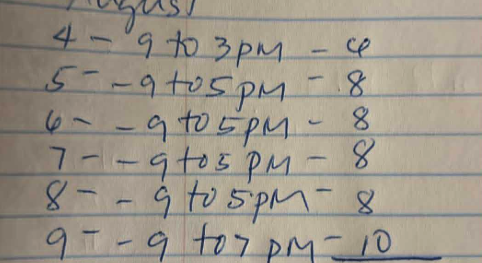 August
4 - 9 to 3 pm - 6
5 - - 9 to 5 pm - 8
6 - - 9 to 5 pm - 8
7 - - 9 to 5 pm - 8
8 - - 9 to 5 pm - 8
9 - - 9 to 7 pm - 10